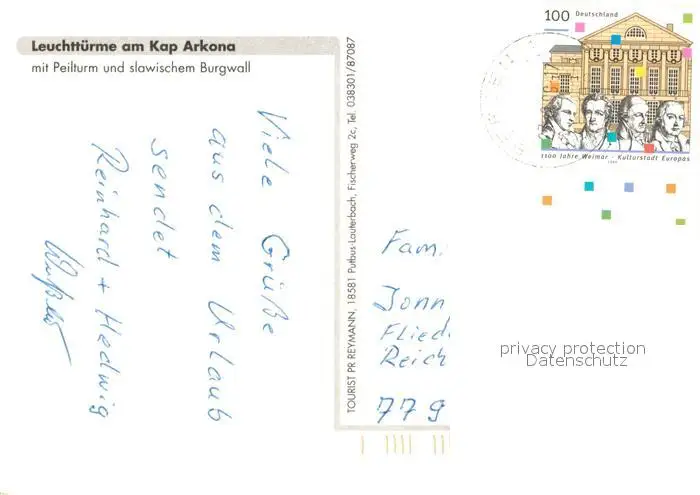 Leuchttürme am Kap Arkona
mit Peilturm und slawischem Burgwall
Viele Grüße
aus dem Urlaub
sendet
Reinhard + Hedwig
TOURIST PR REYMANN, 18581 Putbus-Lauterbach, Fischerweg 2c, Tel. 038301/87087
100 Deutschland
1100 Jahre Weimar - Kulturstadt Europas
1999
Fam.
Jonn
Flied
Reich
779
privacy protection
Datenschutz